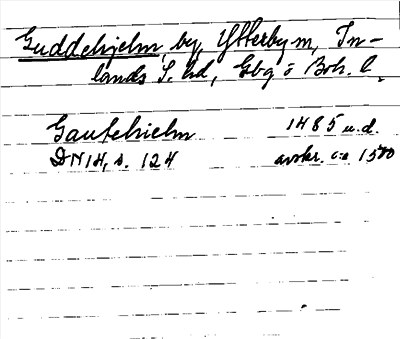 Guddehjelm, by, Ytterby sn, In-
lands S. hd, Gbg o Boh. l.
Gautehielm 1485 u.d.
DN 14, s. 124 avskr. c:a 1500